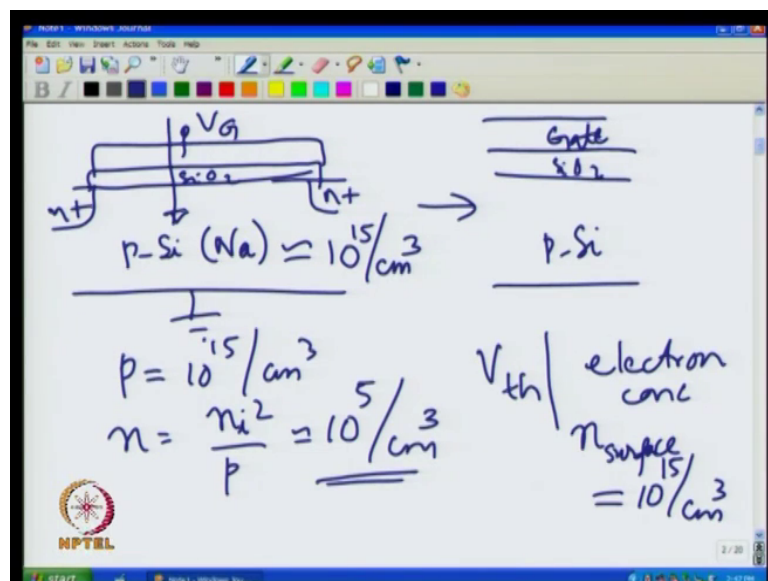 Note1 - Windows Journal
File Edit View Insert Actions Tools Help
B I
V_G
SiO₂
n+ n+
p-Si (Na) ≃ 10^15/cm^3
→
Gate
SiO₂
p-Si
p = 10^15/cm^3
n = n_i^2/p ≃ 10^5/cm^3
V_th | electron
conc
n_surface
= 10^15/cm^3
NPTEL
2 / 20
start
Note1 - Windows Jou...
2:47 PM